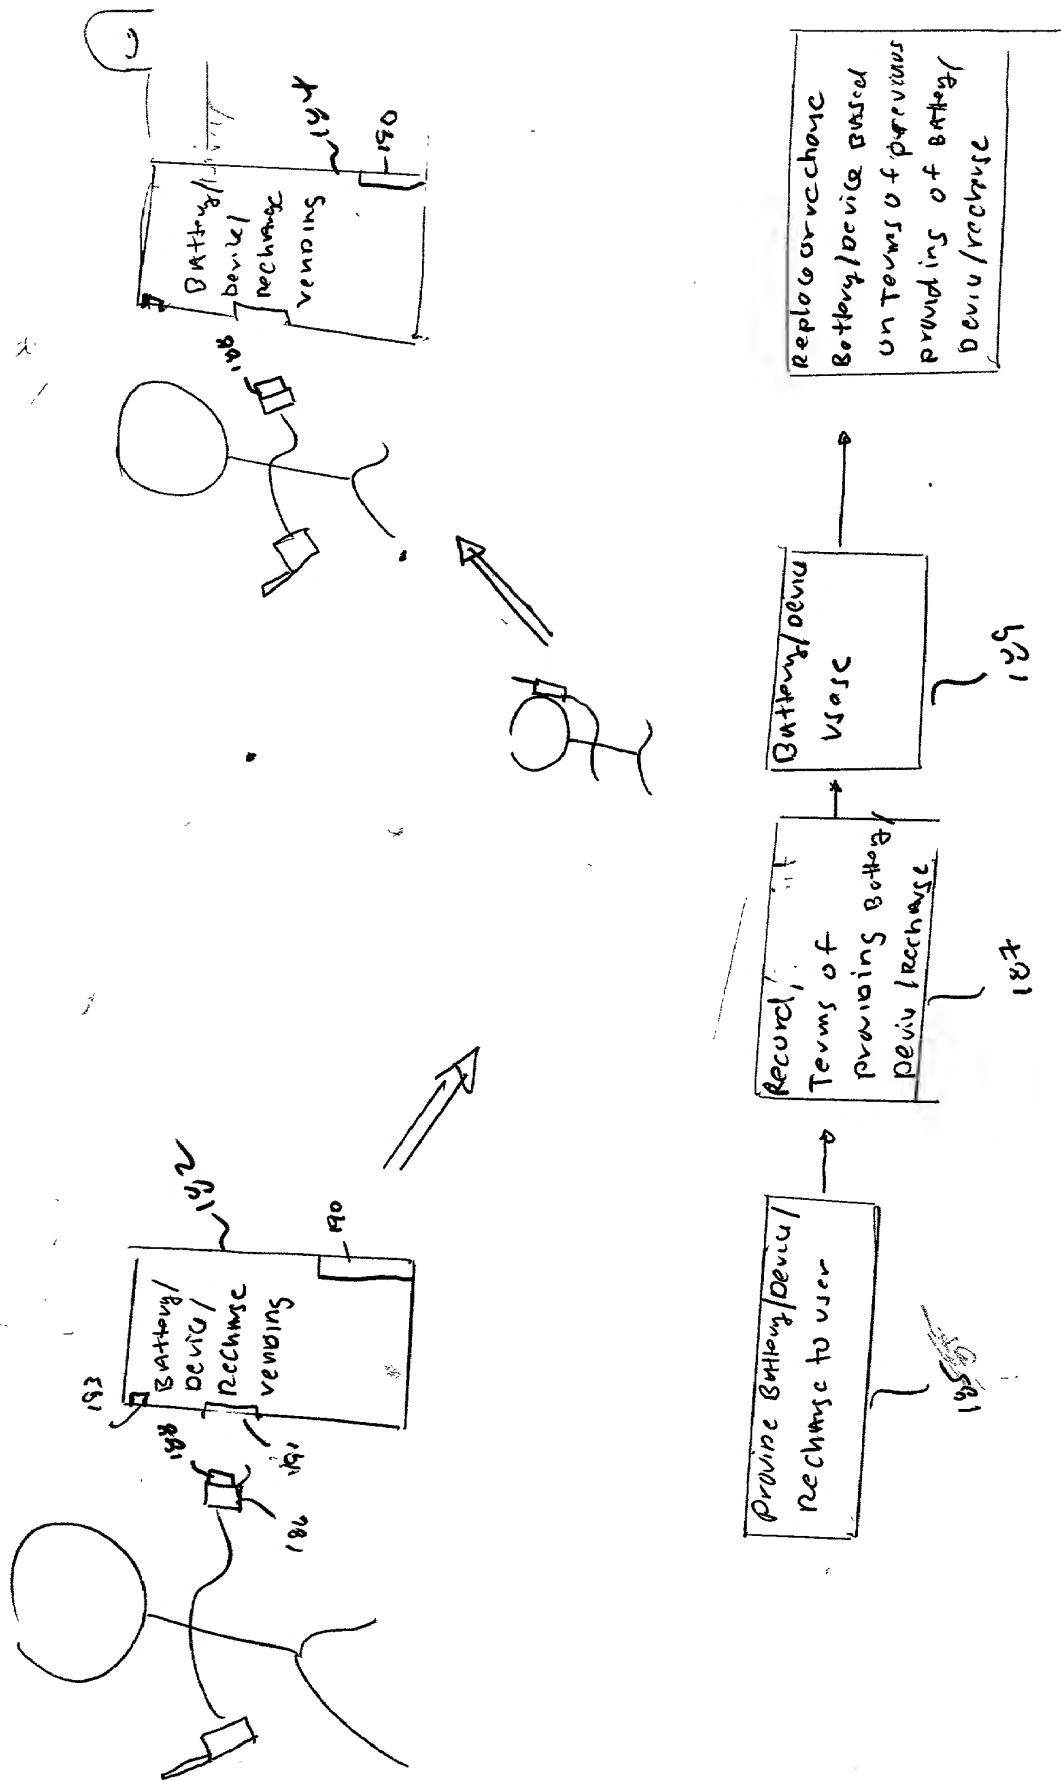 193
188
191
186
BAttery/
Device/
Recharge
vending
192
190
188
BAttery/
Device/
Recharge
vending
194
190
Provide Battery/Device/
Recharge to user
185
Record,
Terms of
providing Battery/
Device/Recharge
187
Battery/Device
usage
189
Replace or recharge
Battery/Device Based
on Terms of previous
providing of BAttery/
Device/recharge